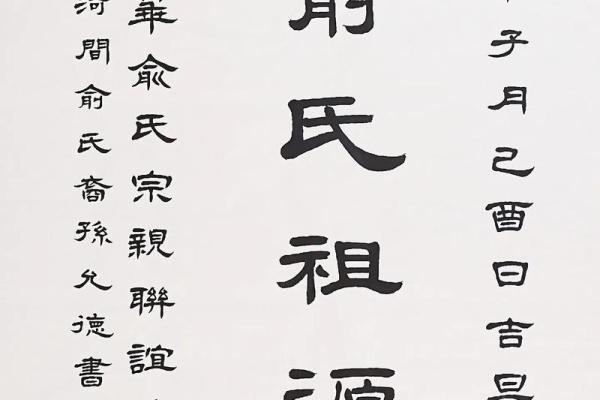 子月己酉日吉
俞氏祖源
華兪氏宗親聯誼
河間俞氏裔孫允德書